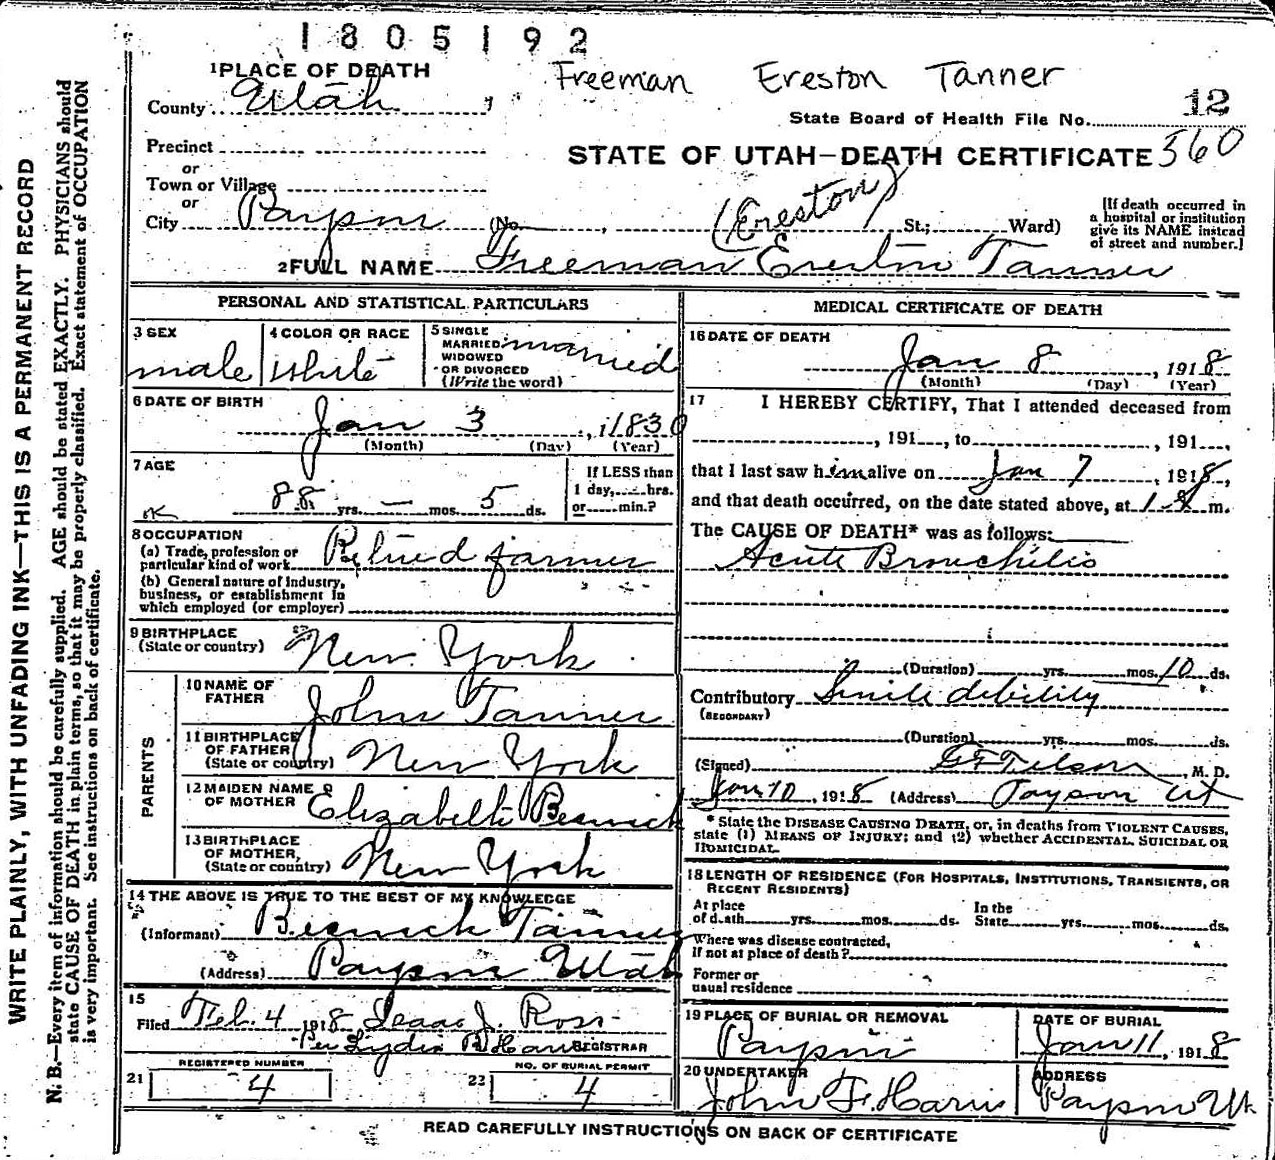 1805192
Freeman Ereston Tanner
1 PLACE OF DEATH
County Utah
12
State Board of Health File No.
Precinct
STATE OF UTAH—DEATH CERTIFICATE 560
or
Town or Village
or
(Ereston)
City Payson (No. , St.; Ward)
[If death occurred in
a hospital or institution
give its NAME instead
of street and number.]
2 FULL NAME Freeman Ereston Tanner
PERSONAL AND STATISTICAL PARTICULARS
3 SEX
male
4 COLOR OR RACE
White
5 SINGLE
MARRIED
WIDOWED
OR DIVORCED
(Write the word)
married
6 DATE OF BIRTH
Jan 3, 1830
(Month) (Day) (Year)
7 AGE
88 yrs. — mos. 5 ds.
If LESS than
1 day, hrs.
or min.?
8 OCCUPATION
(a) Trade, profession or
particular kind of work Retired farmer
(b) General nature of industry,
business, or establishment in
which employed (or employer)
9 BIRTHPLACE
(State or country) New York
PARENTS
10 NAME OF
FATHER John Tanner
11 BIRTHPLACE
OF FATHER
(State or country) New York
12 MAIDEN NAME
OF MOTHER Elizabeth Beswick
13 BIRTHPLACE
OF MOTHER,
(State or country) New York
14 THE ABOVE IS TRUE TO THE BEST OF MY KNOWLEDGE
(Informant) Beswick Tanner
(Address) Payson Utah
15
Filed Feb. 4 1918 Isaac J. Ross
Per Lydia REGISTRAR
REGISTERED NUMBER
21 4
NO. OF BURIAL PERMIT
22 4
MEDICAL CERTIFICATE OF DEATH
16 DATE OF DEATH
Jan 8, 1918
(Month) (Day) (Year)
17 I HEREBY CERTIFY, That I attended deceased from
, 191 , to , 191 ,
that I last saw him alive on Jan 7, 1918,
and that death occurred, on the date stated above, at m.
The CAUSE OF DEATH* was as follows:
Acute Bronchitis
(Duration) yrs. mos. 10 ds.
Contributory Senile debility
(SECONDARY)
(Duration) yrs. mos. ds.
(Signed) , M. D.
Jan 10, 1918 (Address) Payson Ut
* State the DISEASE CAUSING DEATH, or, in deaths from VIOLENT CAUSES,
state (1) MEANS OF INJURY; and (2) whether ACCIDENTAL, SUICIDAL OR
HOMICIDAL.
18 LENGTH OF RESIDENCE (FOR HOSPITALS, INSTITUTIONS, TRANSIENTS, OR
RECENT RESIDENTS)
At place
of death yrs. mos. ds.
In the
State yrs. mos. ds.
Where was disease contracted,
if not at place of death?
Former or
usual residence
19 PLACE OF BURIAL OR REMOVAL
Payson
DATE OF BURIAL
Jan 11, 1918
20 UNDERTAKER
John F. Haris
ADDRESS
Payson Ut.
READ CAREFULLY INSTRUCTIONS ON BACK OF CERTIFICATE
WRITE PLAINLY, WITH UNFADING INK—THIS IS A PERMANENT RECORD
N. B.—Every item of information should be carefully supplied. AGE should be stated EXACTLY. PHYSICIANS should
state CAUSE OF DEATH in plain terms, so that it may be properly classified. Exact statement of OCCUPATION
is very important. See instructions on back of certificate.